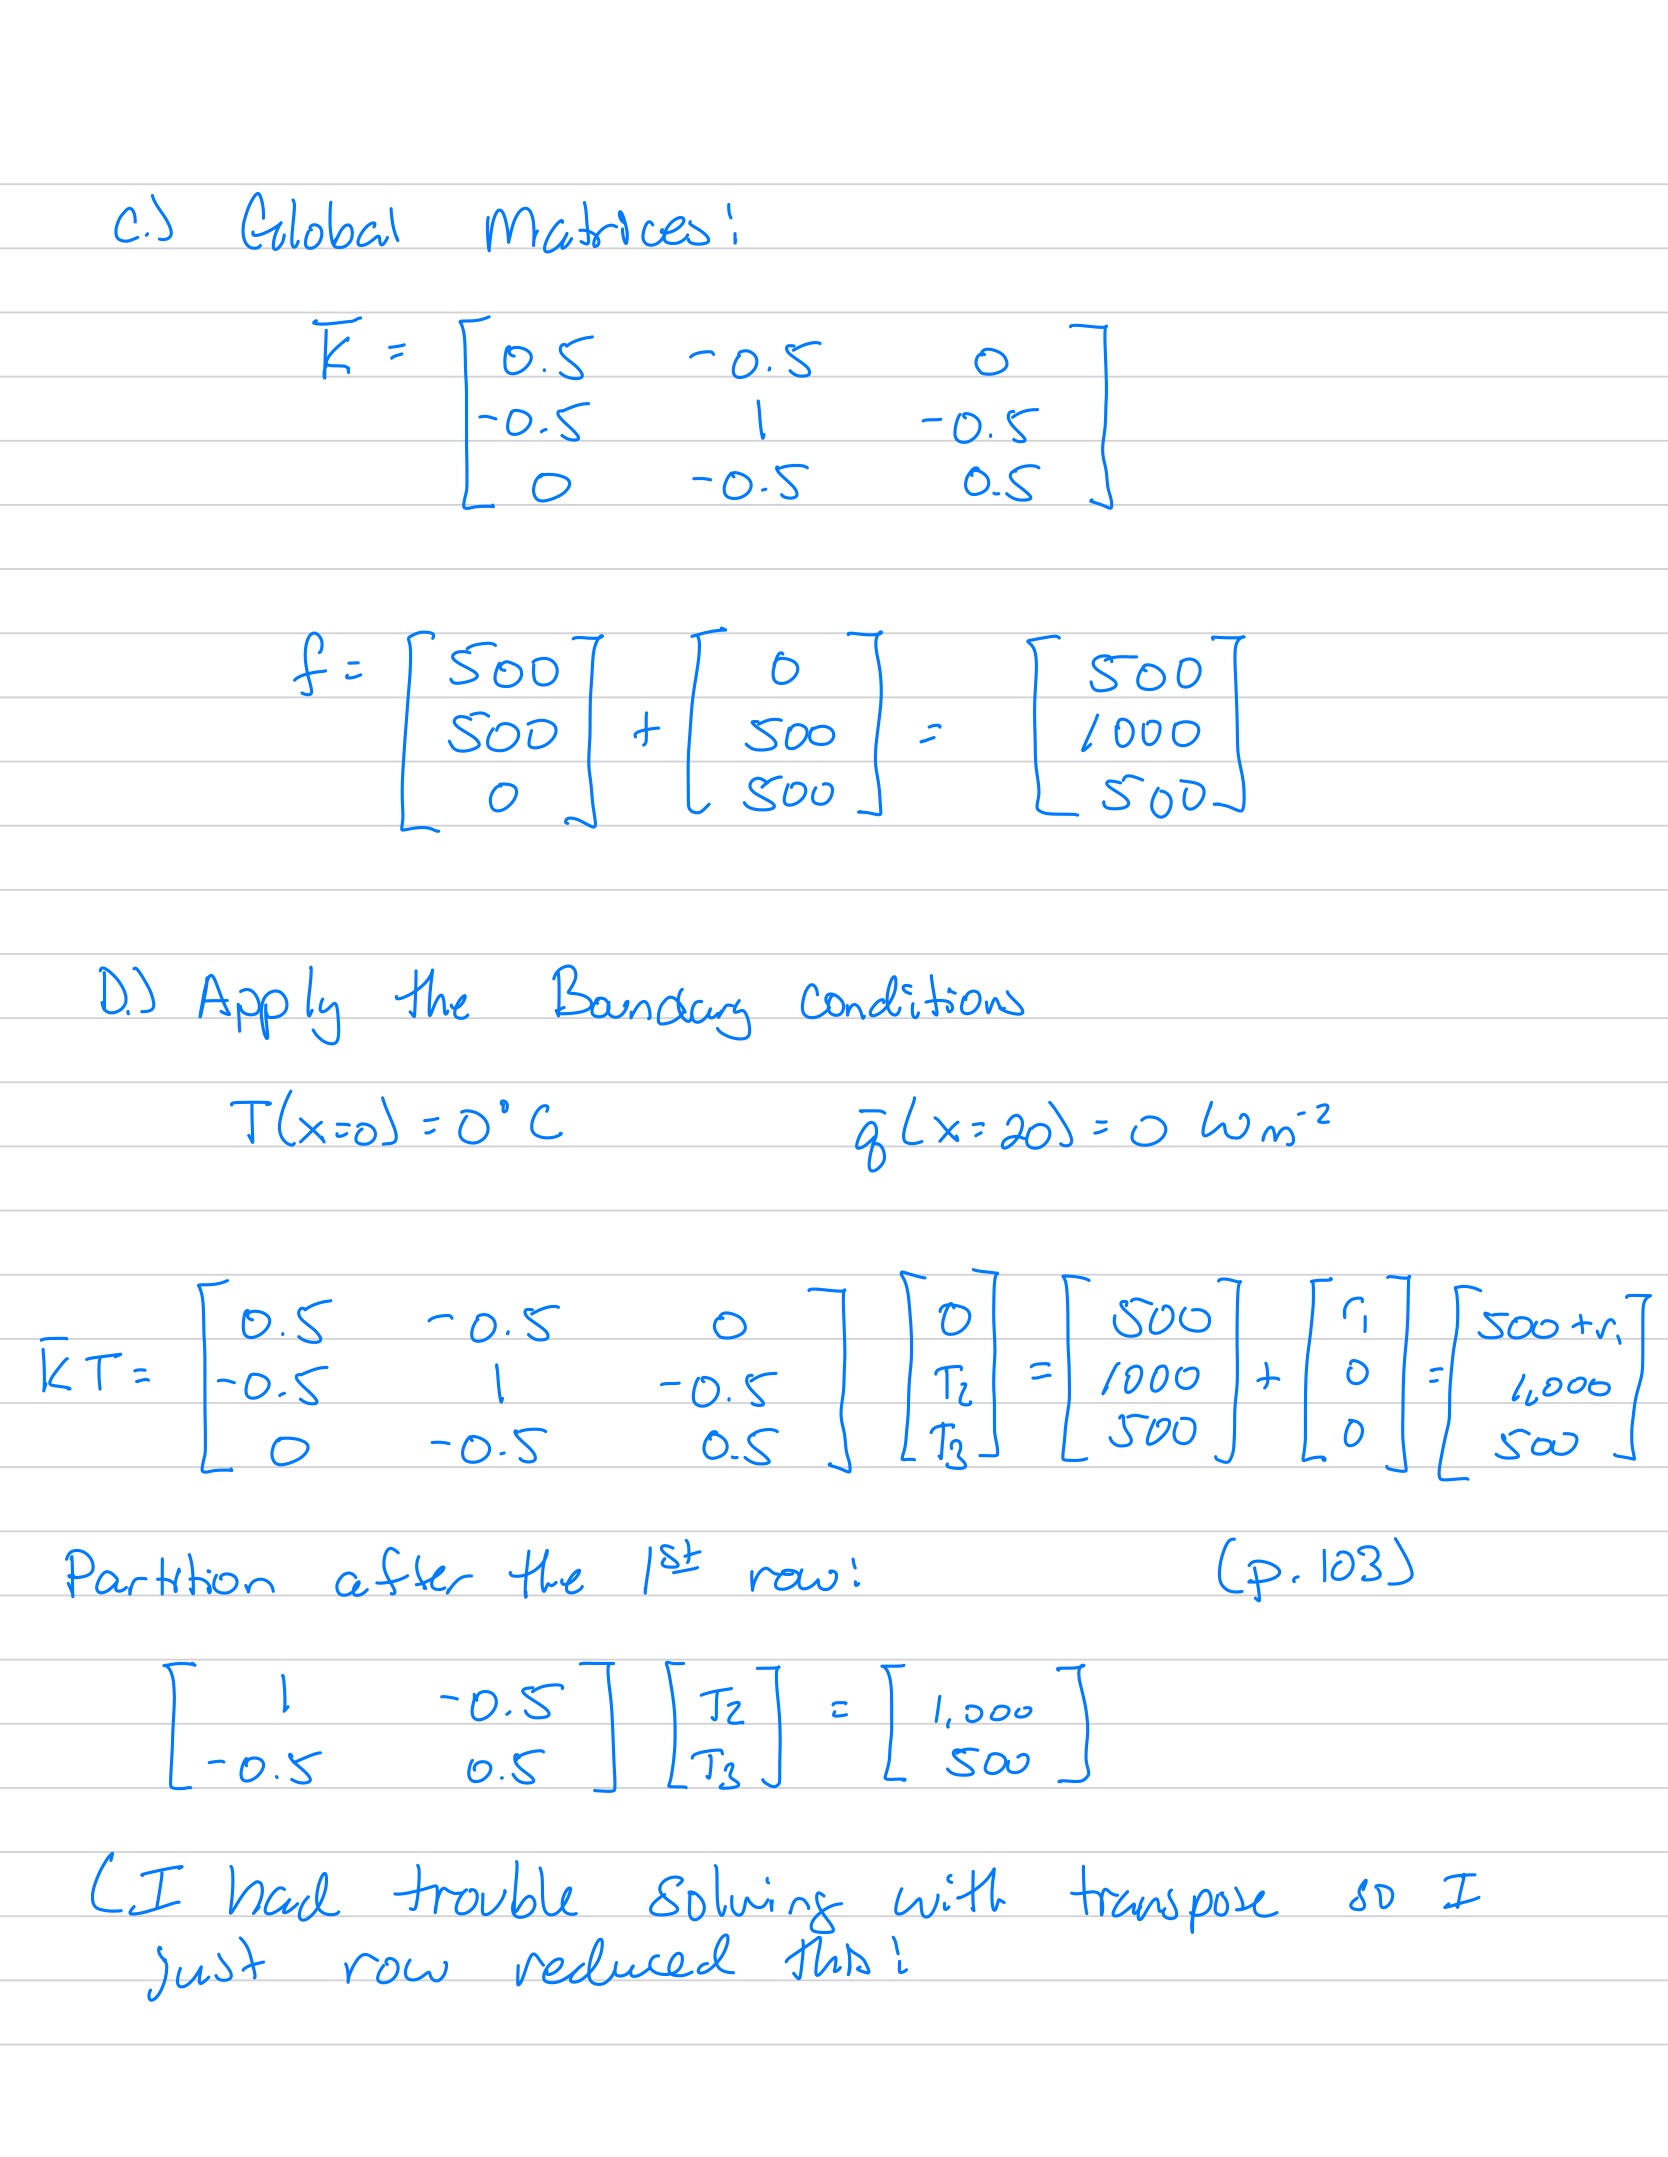 C.) Global Matrices:
K̅ = [ 0.5 -0.5 0
-0.5 1 -0.5
0 -0.5 0.5 ]
f = [ 500 500 0 ] + [ 0 500 500 ] = [ 500 1000 500 ]
D.) Apply the Boundary Conditions
T(x=0) = 0°C q̅(x=20) = 0 Wm⁻²
K̅T = [ 0.5 -0.5 0 ; -0.5 1 -0.5 ; 0 -0.5 0.5 ] [ 0 T₂ T₃ ] = [ 500 1000 500 ] + [ r₁ 0 0 ] = [ 500+r₁ 1,000 500 ]
Partition after the 1st row: (p. 103)
[ 1 -0.5 ; -0.5 0.5 ] [ T₂ T₃ ] = [ 1,000 500 ]
(I had trouble solving with transpose so I
just row reduced this: